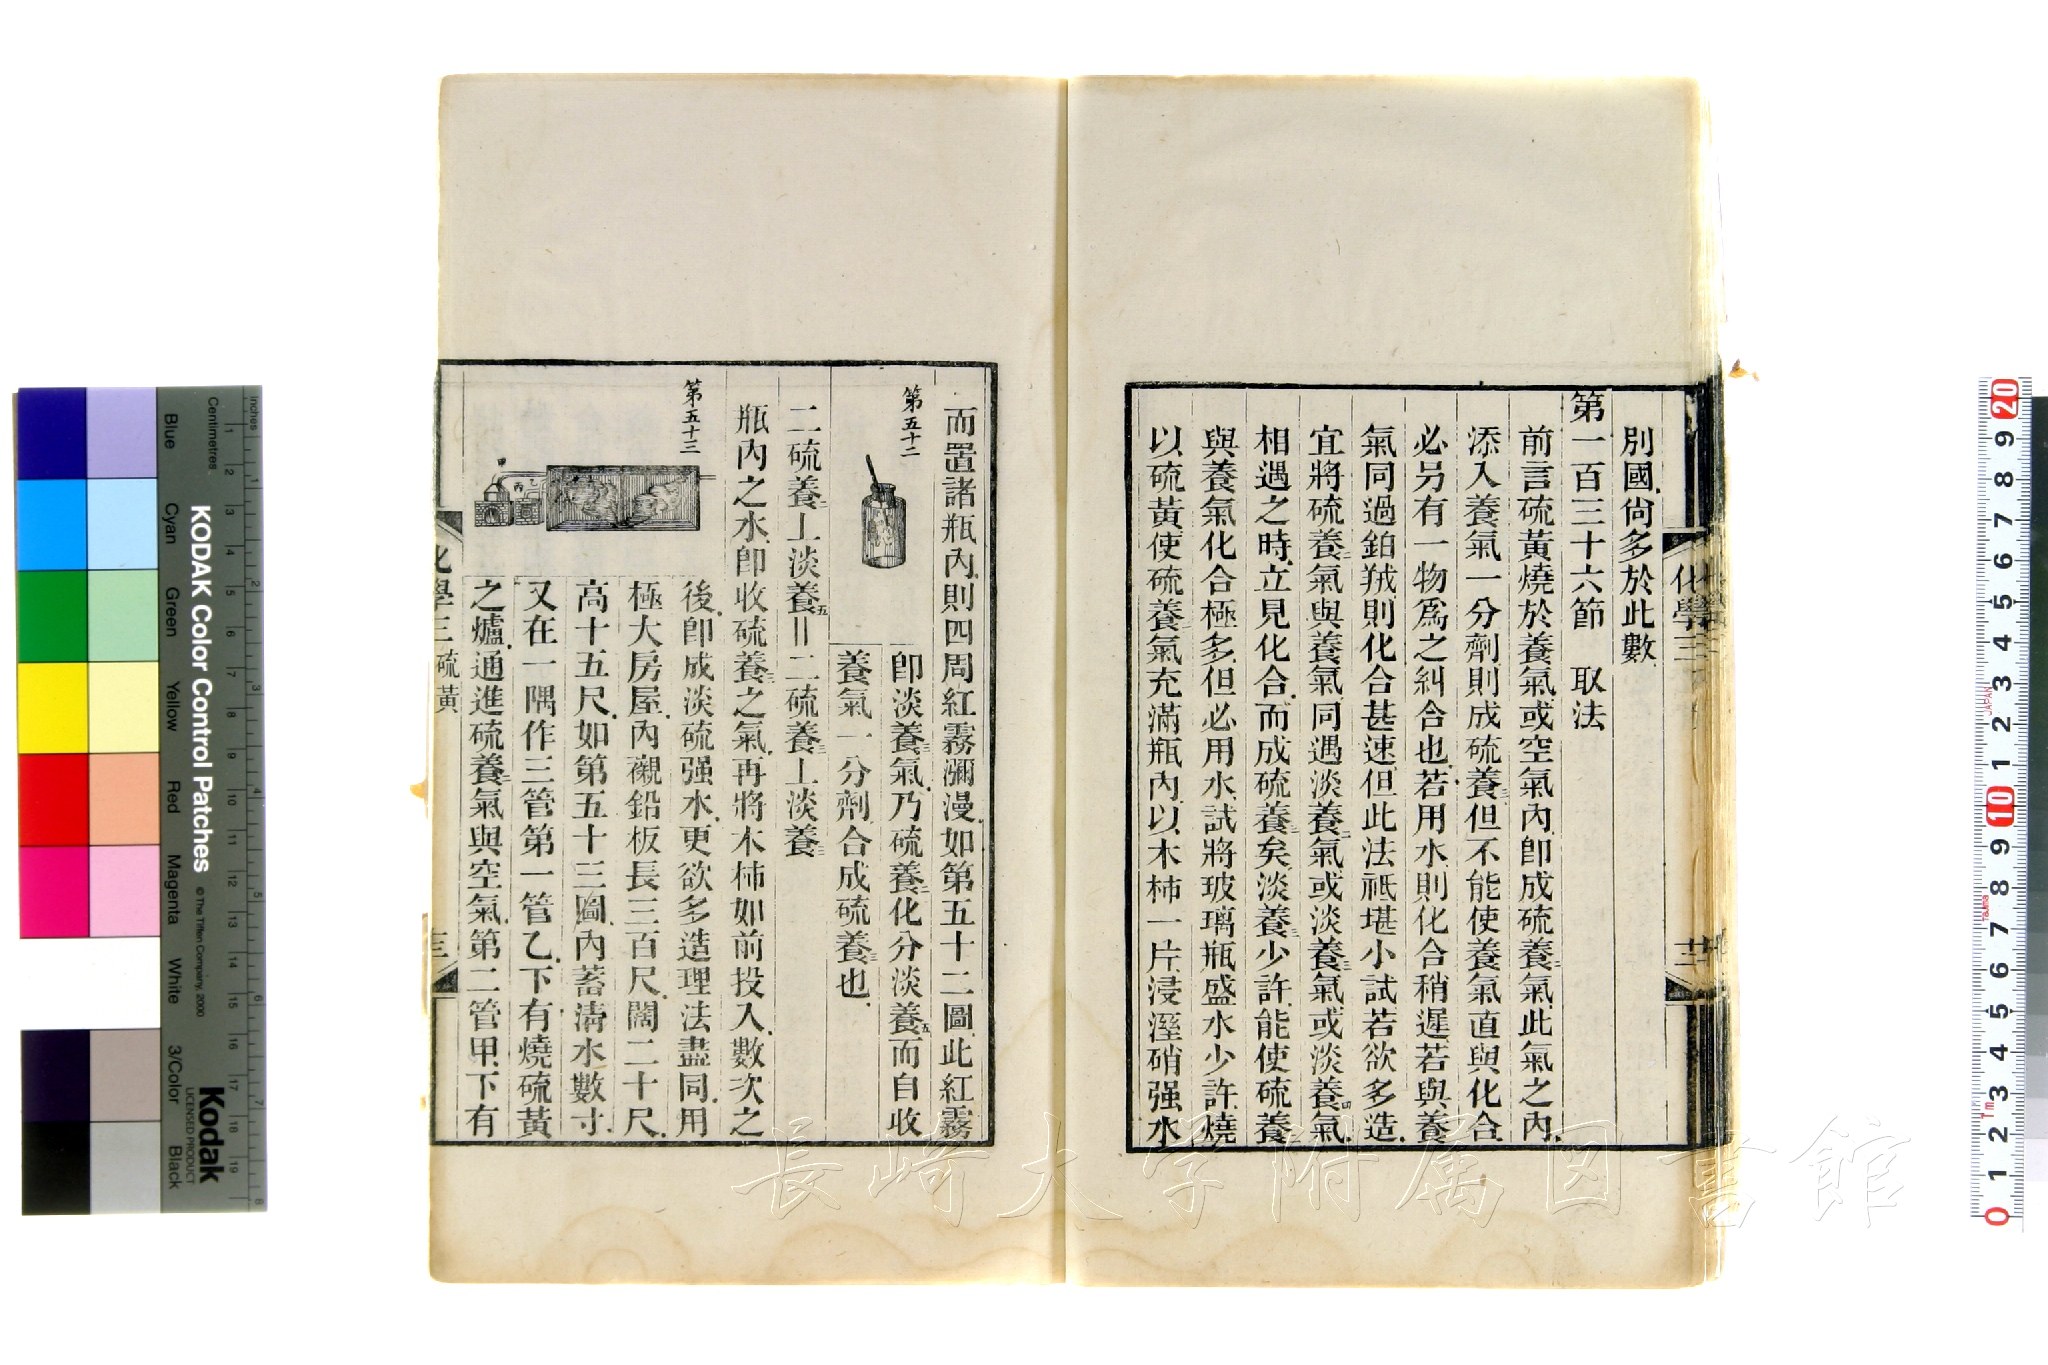 別國尙多於此數
第一百三十六節　取法
前言硫黃燒於養氣或空氣內卽成硫養二氣此氣之內
添入養氣一分劑則成硫養三但不能使養氣直與化合
必另有一物爲之糾合也若用水則化合稍遲若與養
氣同過鉑羢則化合甚速但此法祗堪小試若欲多造
宜將硫養二氣與養氣同遇淡養二氣或淡養三氣或淡養四氣
相遇之時立見化合而成硫養三矣淡養二少許能使硫養二
與養氣化合極多但必用水試將玻璃瓶盛水少許燒
以硫黃使硫養二氣充滿瓶內以木柿一片浸溼硝强水
化學三
而置諸瓶內則四周紅霧瀰漫如第五十二圖此紅霧
第五十二
卽淡養三氣乃硫養二化分淡養五而自收
養氣一分劑合成硫養三也
二硫養二丄淡養五〓二硫養三丄淡養三
瓶內之水卽收硫養三之氣再將木柿如前投入數次之
第五十三
後卽成淡硫强水更欲多造理法盡同用
極大房屋內襯鉛板長三百尺闊二十尺
高十五尺如第五十三圖內蓄淸水數寸
又在一隅作三管第一管乙下有燒硫黃
之爐通進硫養二氣與空氣第二管甲下有
甲
乙
丙
化學三 硫黃
長崎大学附属図書館
KODAK Color Control Patches
© The Tiffen Company, 2000
Kodak
LICENSED PRODUCT
Blue
Cyan
Green
Yellow
Red
Magenta
White
3/Color
Black
inches
Centimetres
1 2 3 4 5 6 7 8 9 10 11 12 13 14 15 16 17 18 19
1 2 3 4 5 6 7 8
0 1 2 3 4 5 6 7 8 9 10 1 2 3 4 5 6 7 8 9 20
JAPAN